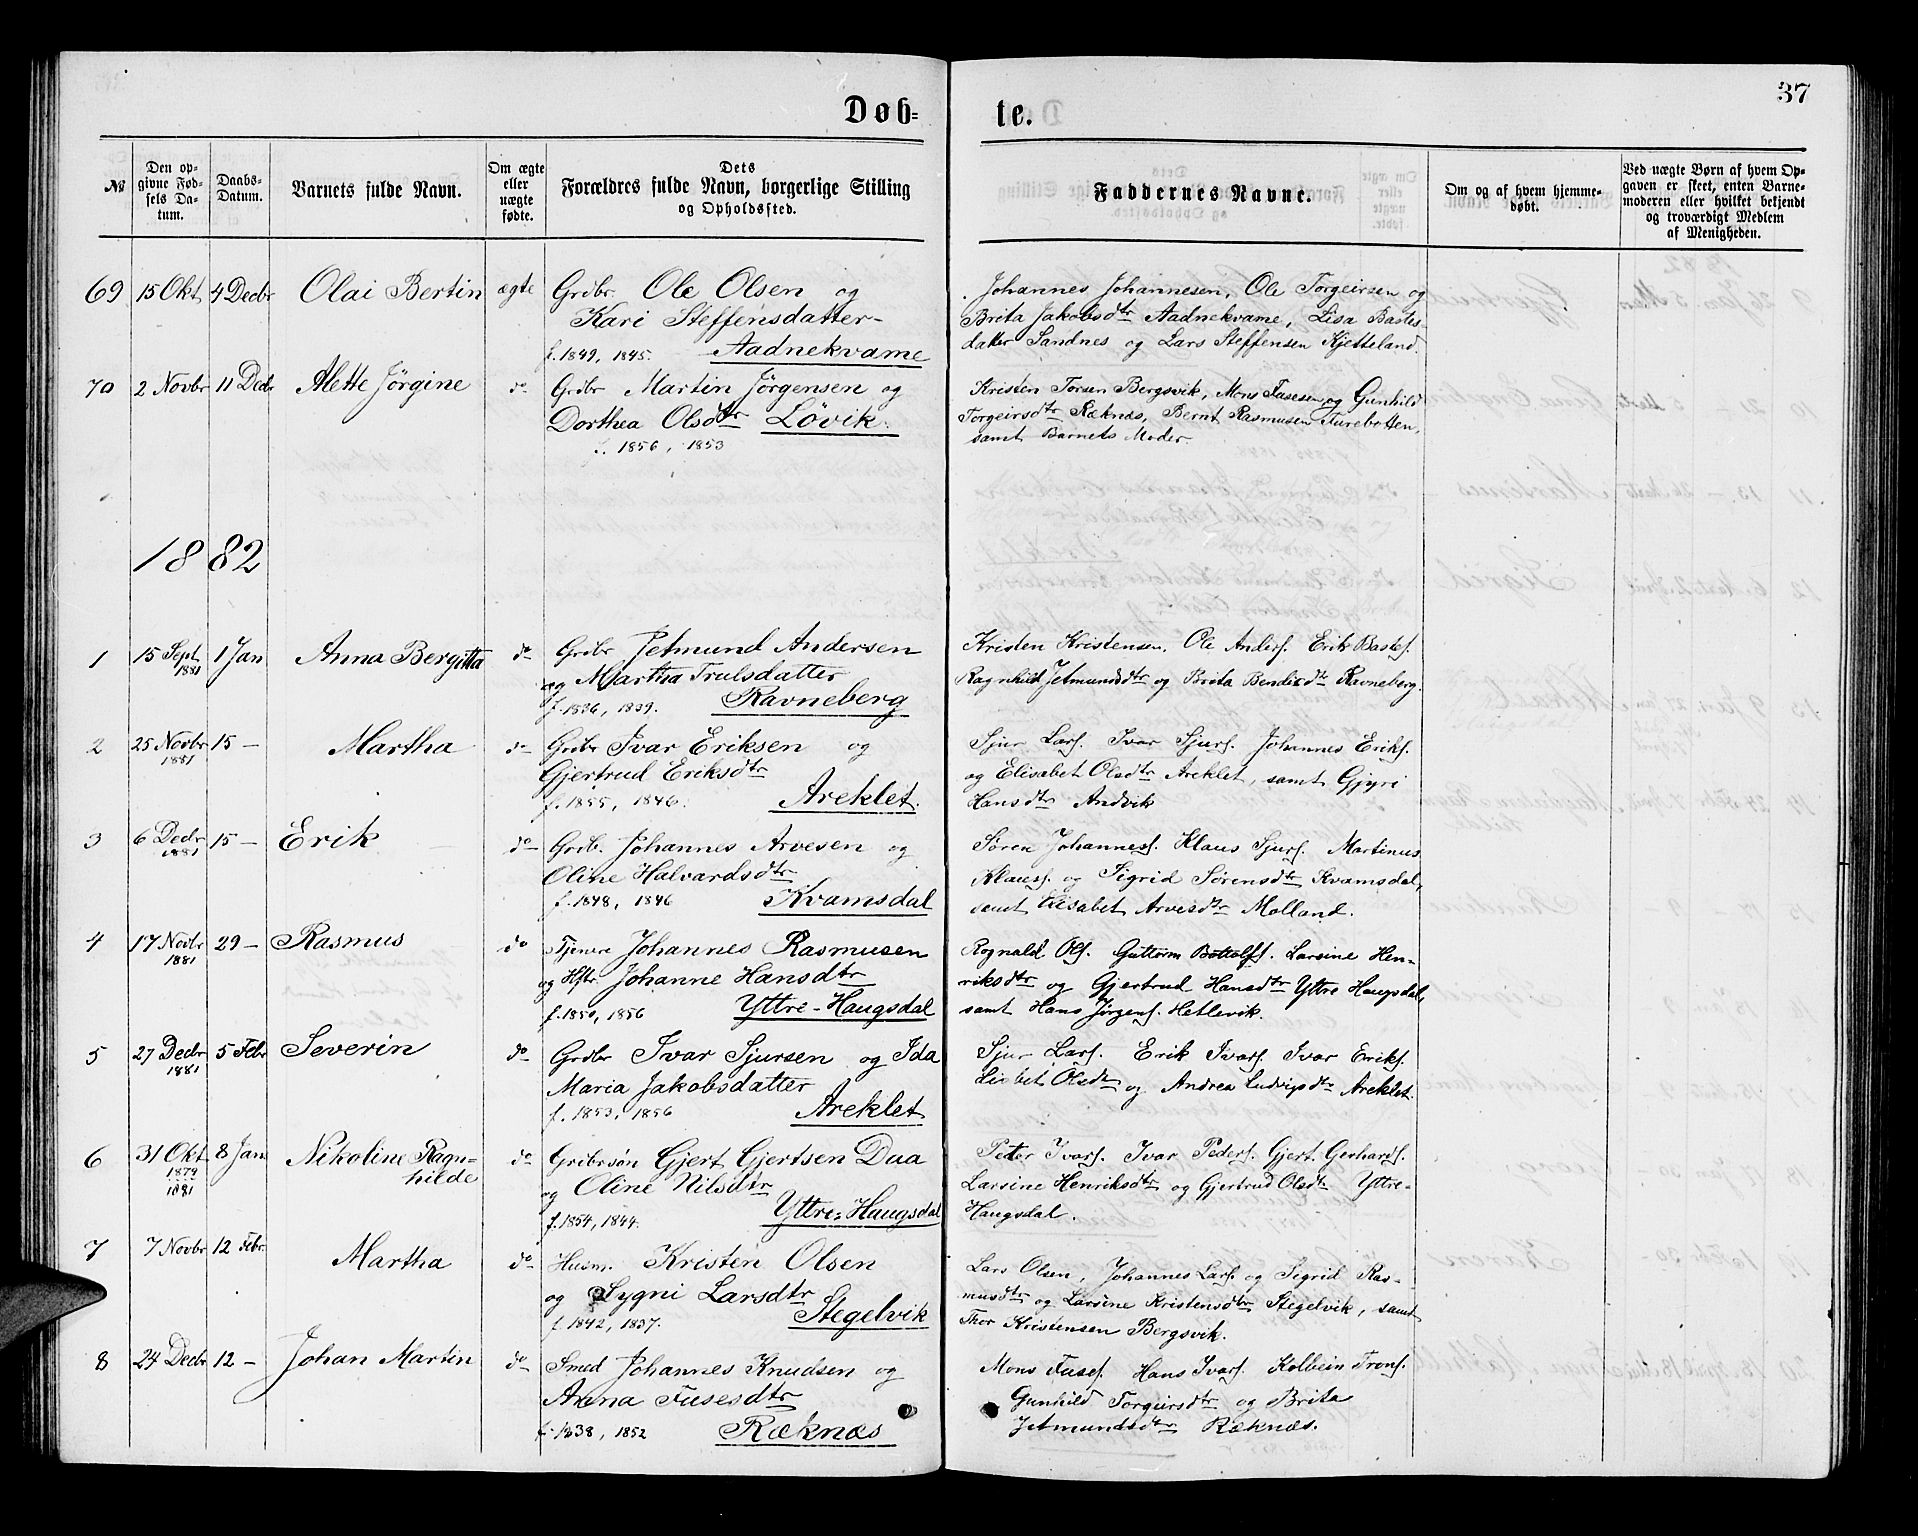 37
Døb=
te.
№
Den op-
givne Fød-
sels Da-
tum.
Daabs-
Datum.
Barnets fulde Navn.
Om ægte
eller
uægte
fødte.
Dets
Forældres fulde Navn, borgerlige Stilling
og Opholdssted.
Faddernes Navne.
Om og af hvem hjemme-
døbt.
Ved uægte Børn af hvem Op-
gaven er skeet, enten Barne-
moderen eller hvilket bekjendt
og troværdigt Medlem
af Menigheden.
69 15 Okt 4 Decbr Olai Bertin ægte Grdbr. Ole Olsen og
Kari Steffensdatter-
f. 1849, 1845. Aadnekvame
Johannes Johannesen, Ole Torgeirsen og
Brita Jakobsdtr Aadnekvame, Lisa Bastes-
datter Sandnes og Lars Steffensen Kjetteland.
70 2 Novbr 11 Decbr Alette Jörgine do Grdbr Martin Jörgensen og
Dorthea Olsdtr Lövik.
f. 1856, 1853
Kristen Torsen Bergsvik, Mons Fusesen og Gunhild
Torgeirsdtr Ræknæs, Bernt Rasmusen Turebotten,
samt Barnets Moder.
1882
1 15 Sept 1 Jan Anna Bergitta do Grdbr Jetmund Andersen
1881
og Martha Trulsdatter
f. 1836, 1839. Ravneberg
Kristen Kristensen. Ole Anders. Erik Bastes.
Ragnhild Jetmundsdtr og Brita Bendixdtr Ravneberg.
2 25 Novbr 15 - Martha do Grdbr Ivar Eriksen og
1881
Gjertrud Eriksdtr
f. 1855, 1846. Areklet.
Sjur Lars. Ivar Sjurs. Johannes Eriks.
og Elisabet Olsdtr Areklet, samt Gjyri
Hansdtr Andvik
3 6 Decbr 15 - Erik do Grdb. Johannes Arvesen og
1881
Oline Halvardsdtr
f. 1848, 1846 Kvamsdal
Sören Johanness. Klaus Sjurs. Martinus
Klauss. og Sigrid Sörensdtr Kvamsdal,
samt Elisabet Arvesdtr Molland.
4 17 Novbr 29 - Rasmus do Tjener Johannes Rasmusen
1881
og Hstr. Johanne Hansdtr
f. 1850, 1856 Yttre-Haugsdal
Rognald Ols. Guttorm Bottolfs. Larsine Hen-
riksdtr og Gjertrud Hansdtr Yttre Haugsdal,
samt Hans Jörgens. Hetlevik.
5 27 Decbr 5 Febr Severin do Grdbr Ivar Sjursen og Ida
1881
Maria Jakobsdatter
f. 1853, 1856 Areklet
Sjur Lars. Erik Ivars. Ivar Eriks.
Lisbet Olsdtr og Andrea Ludvigsdtr Areklet.
6 31 Okt 8 Jan Nikoline Ragn=
1879
hilde
1881
do Grdbrsön Gjert Gjertsen Daa
og Oline Nilsdtr
f. 1854, 1844. Yttre=Haugsdal
Peder Ivars. Ivar Peders. Gjert Gerhards.
Larsine Henriksdtr og Gjertrud Olsdtr Yttre-
Haugsdal.
7 7 Novbr 12 Febr. Martha do Husm. Kristen Olsen
og Sygni Larsdtr
f. 1842, 1837. Stegelvik
Lars Olsen, Johannes Lars. og Sigrid Ras-
musdtr og Larsine Kristensdtr Stegelvik, samt
Thor Kristensen Bergsvik.
8 24 Decbr 12 - Johan Martin do Smed Johannes Knudsen og
Anna Fusesdtr
f. 1838, 1852 Ræknæs
Mons Fuses. Hans Ivars. Kolbein Trons.
Gunhild Torgeirsdtr og Brita
Jetmundsdtr Ræknæs.